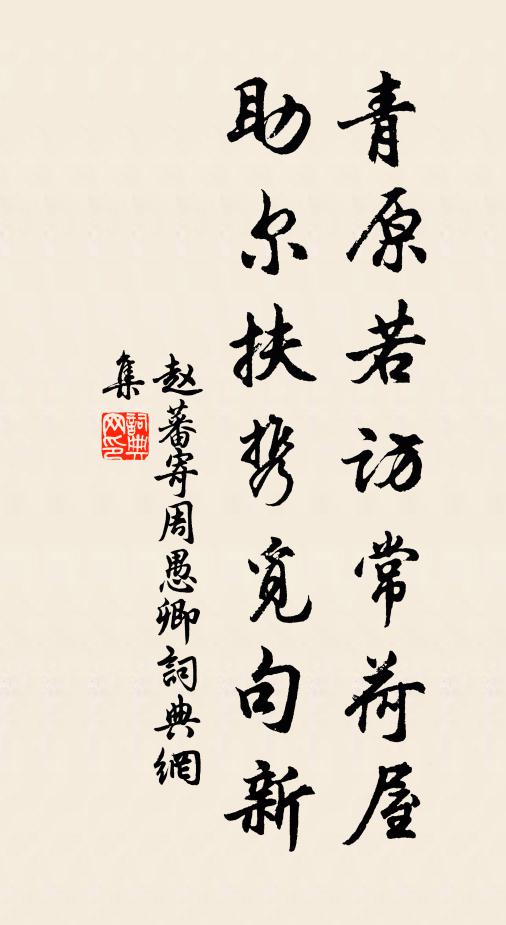 青原若访常荷屋
助尔扶携觅句新
赵蕃寄周愚卿詞典網
集
詞典
网印